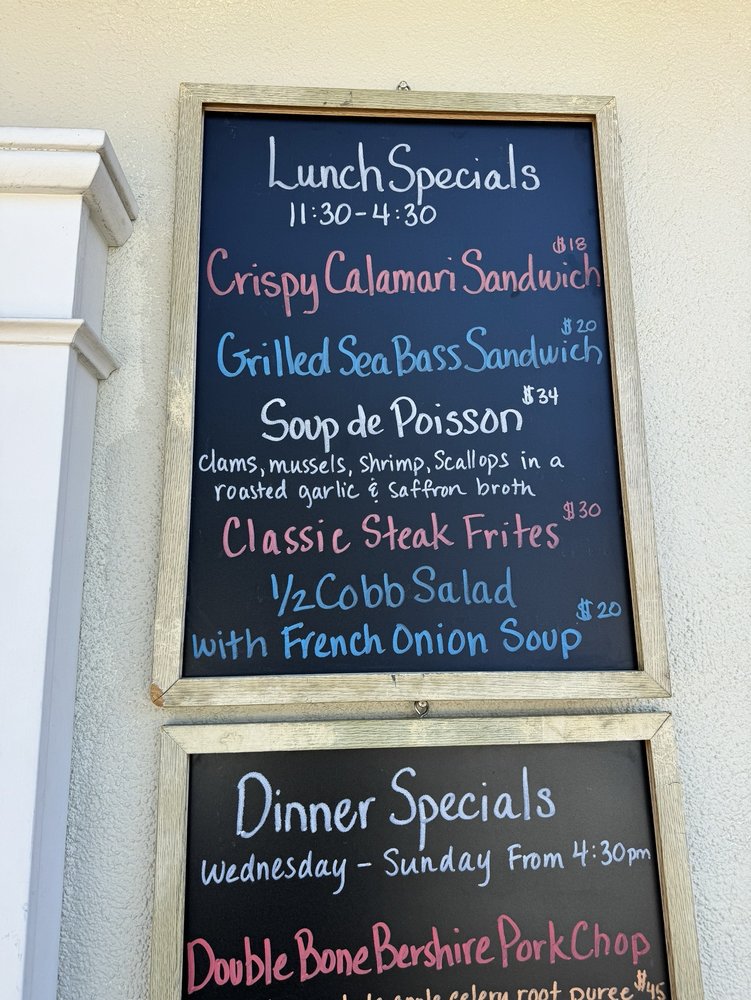 Lunch Specials
11:30-4:30
$18
Crispy Calamari Sandwich
$20
Grilled Sea Bass Sandwich
Soup de Poisson $34
clams, mussels, shrimp, Scallops in a
roasted garlic & saffron broth
Classic Steak Frites $30
1/2 Cobb Salad
with French Onion Soup $20
Dinner Specials
Wednesday - Sunday From 4:30pm
Double Bone Bershire Pork Chop
apple celery root puree $45